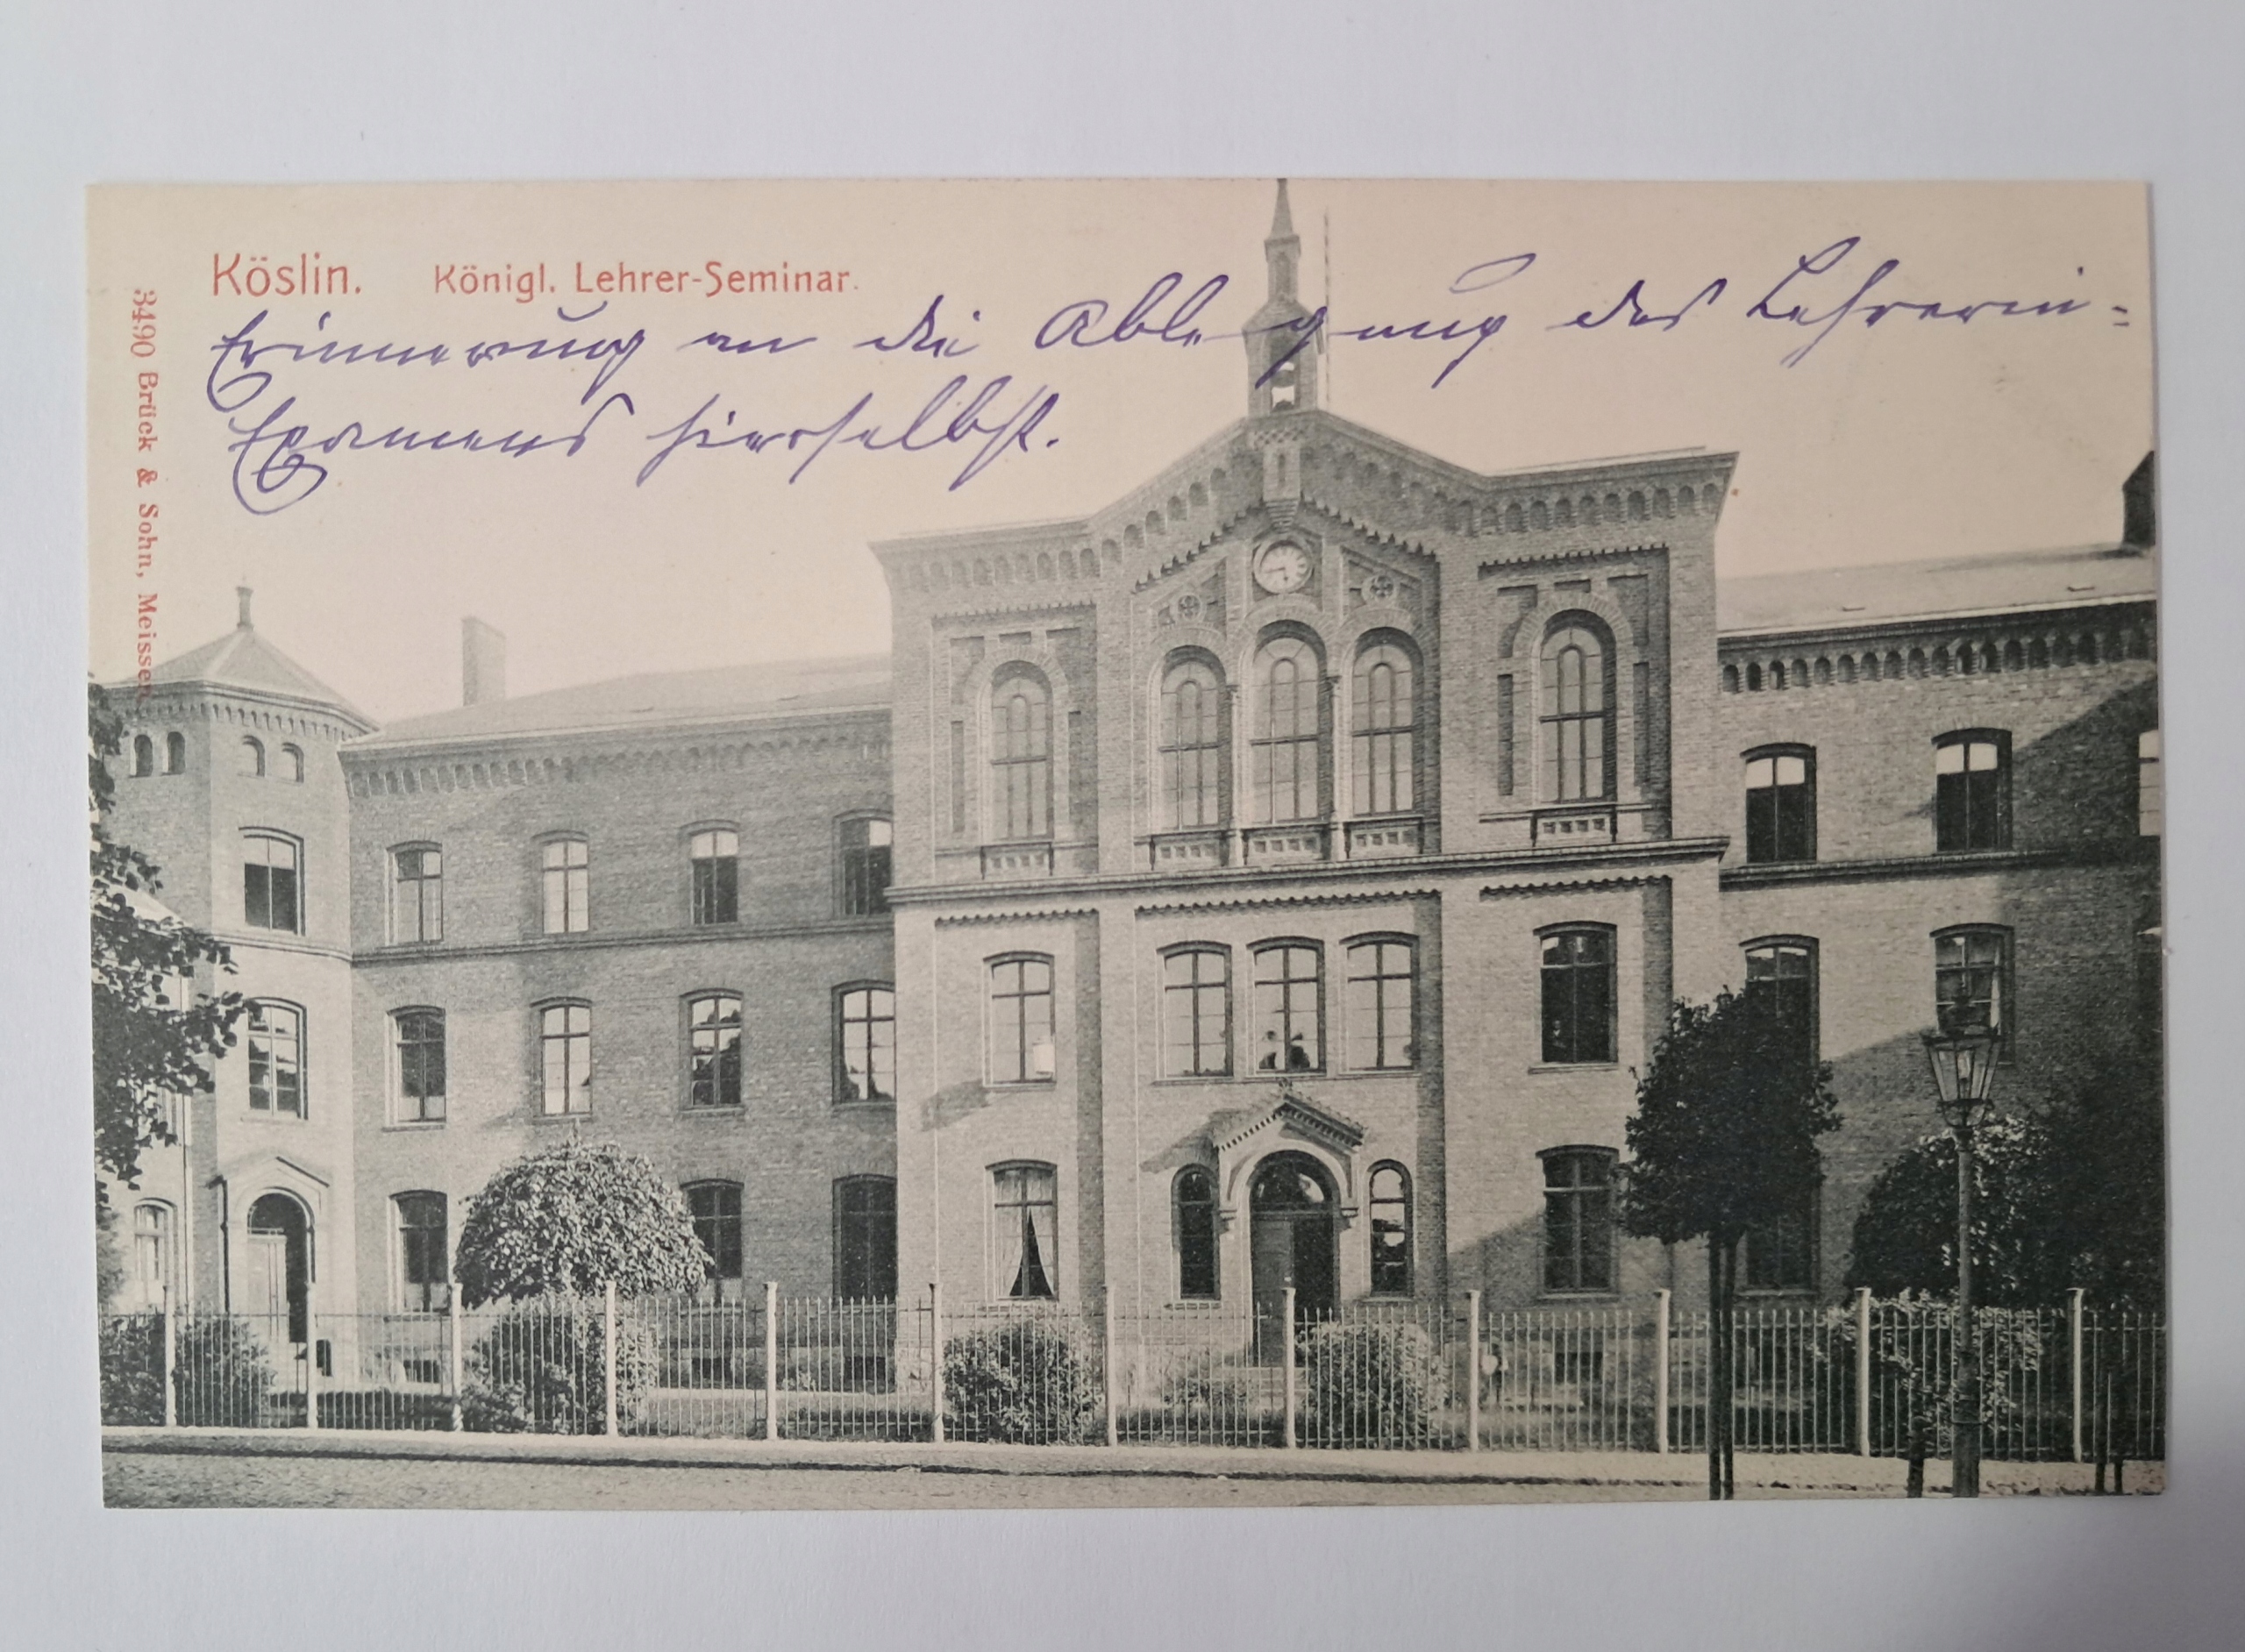 Köslin. Königl. Lehrer-Seminar.
Erinnerung an die Ablegung des Lehrerin-
Examens hierselbst.
3490 Brück & Sohn, Meissen.